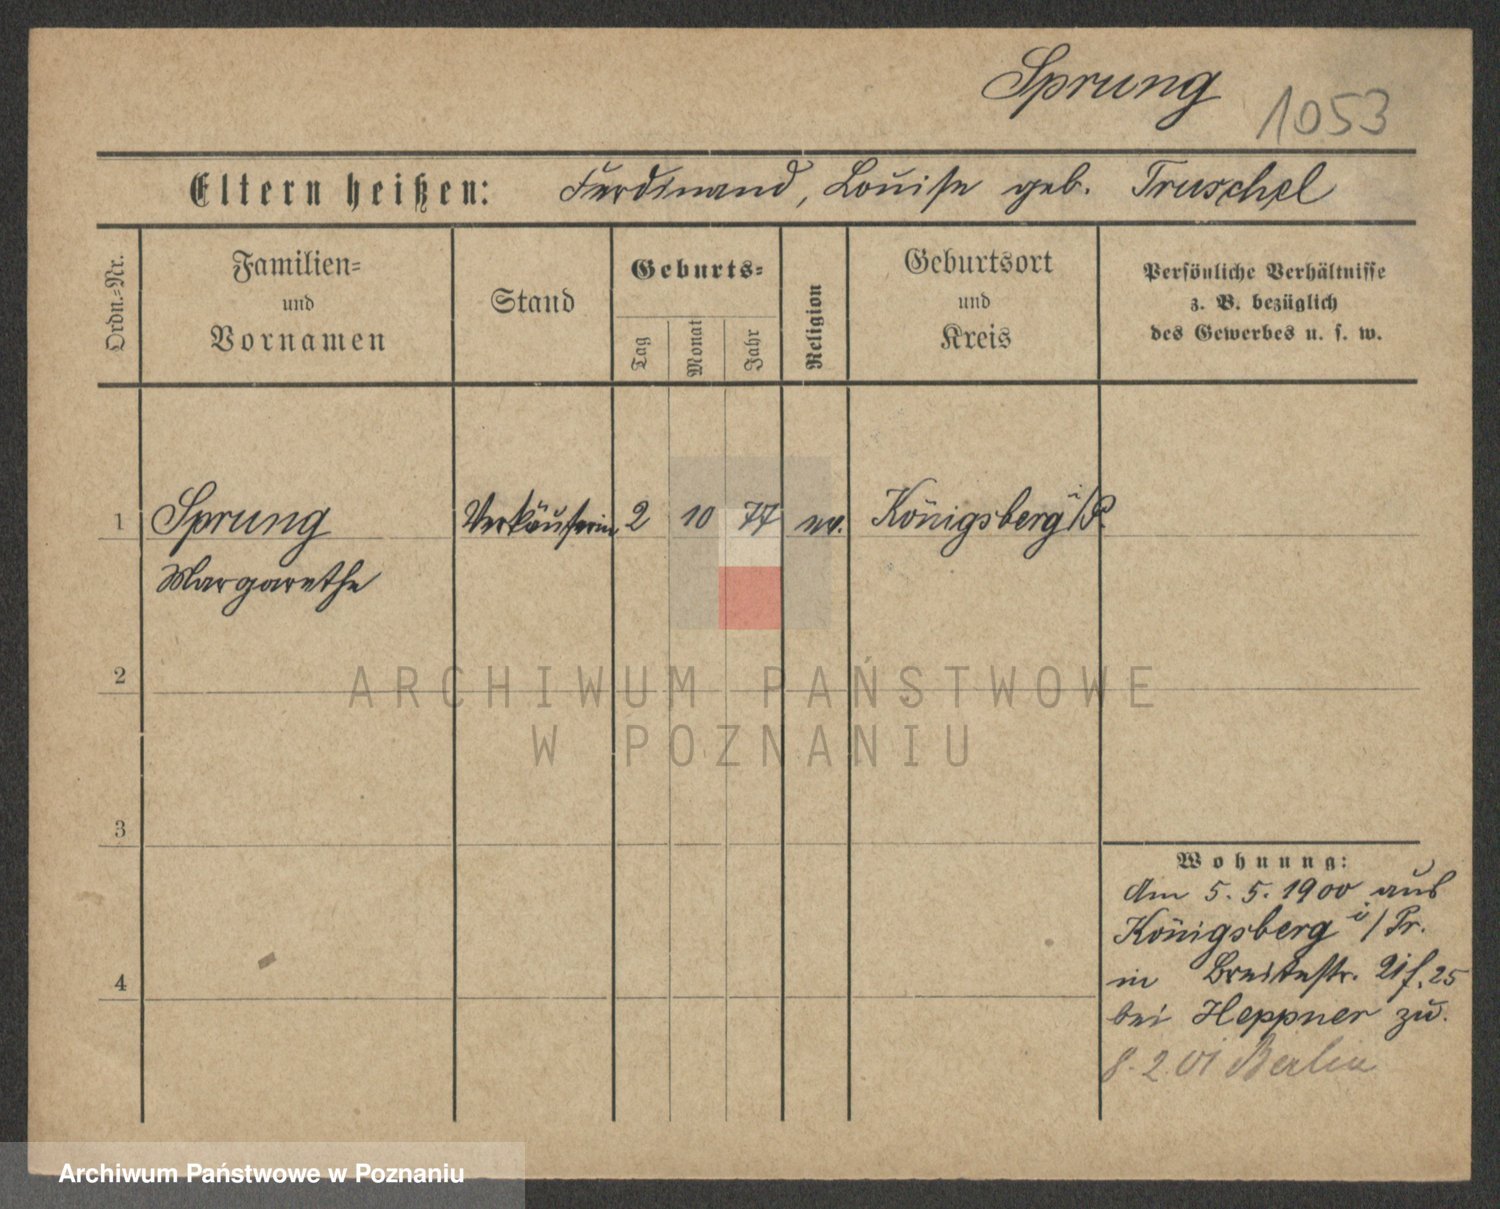 Sprung
1053
Eltern heißen: Ferdinand, Louise geb. Truschel
Ordn.-Nr.
Familien-
und
Vornamen
Stand
Geburts-
Tag
Monat
Jahr
Religion
Geburtsort
und
Kreis
Persönliche Verhältnisse
z. B. bezüglich
des Gewerbes u. s. w.
1 Sprung Verkäuferin 2 10 77 ev. Königsberg i/P.
Margarethe
2
ARCHIWUM PAŃSTWOWE
W POZNANIU
3
4
Wohnung:
Am 5. 5. 1900 aus
Königsberg i/Pr.
in Breitestr. 25
bei Heppner zu.
8. 2. 01 Berlin
Archiwum Państwowe w Poznaniu